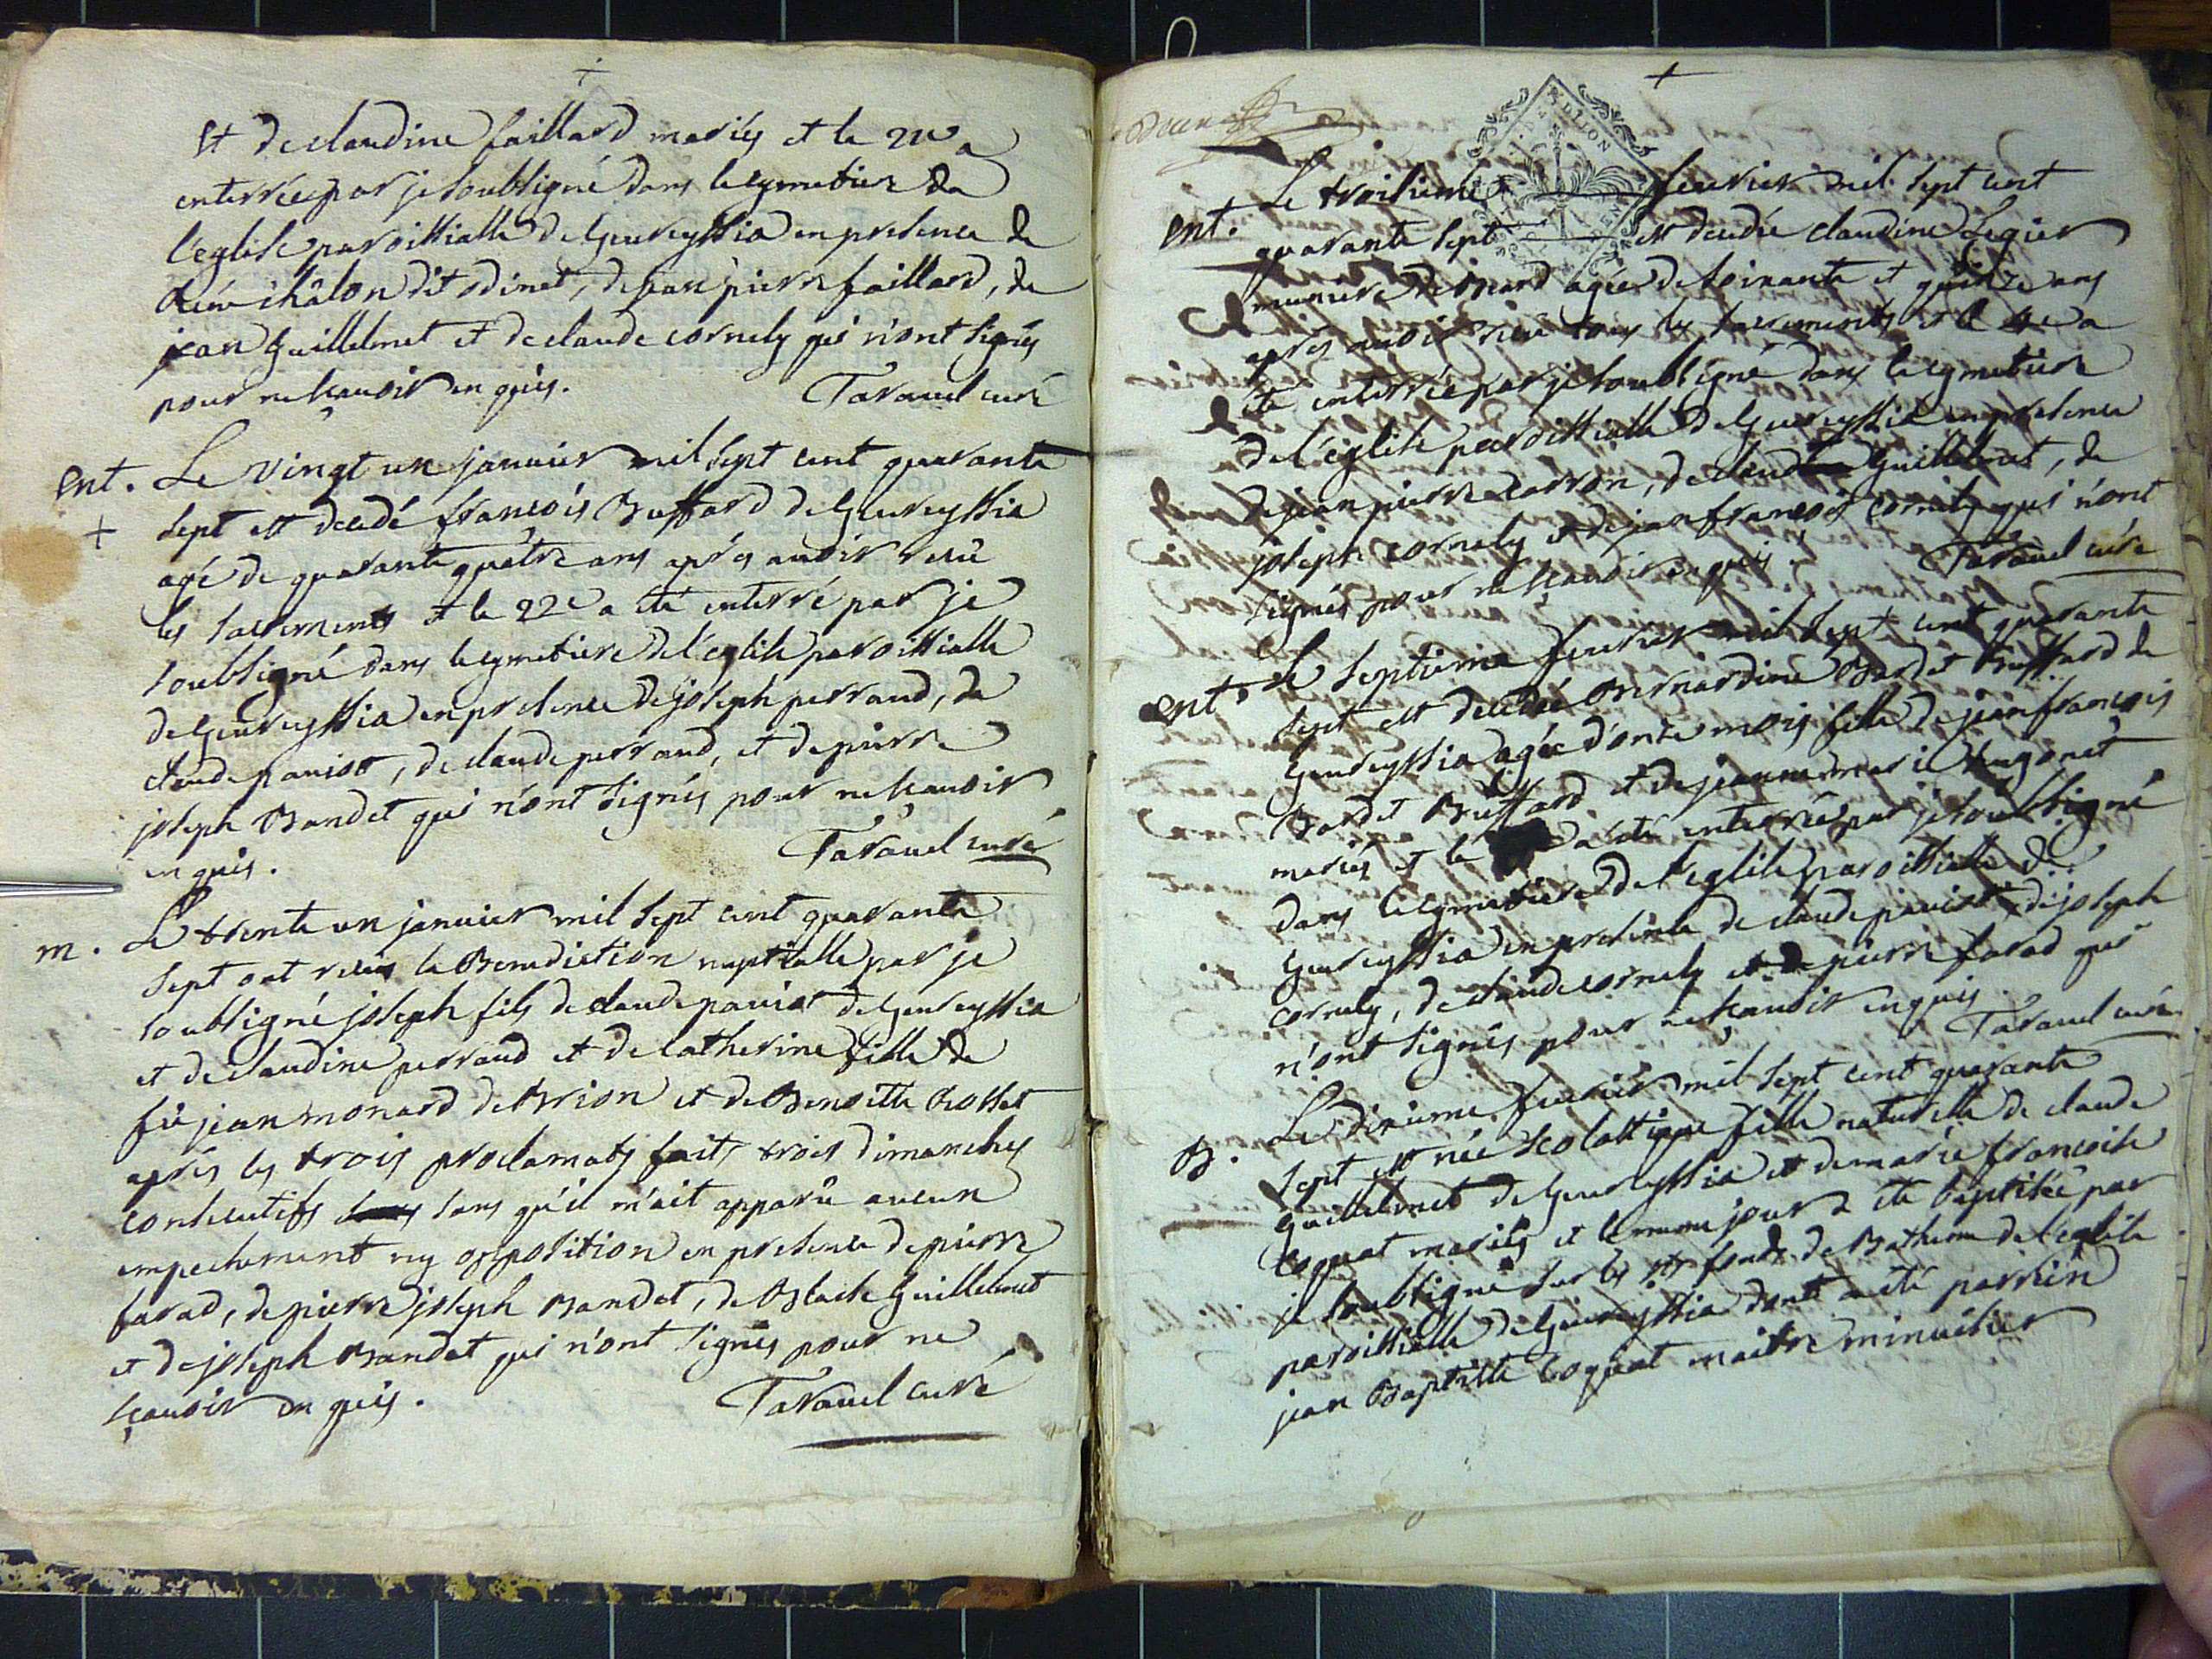 et de claudine faillard mariés et le 21e a
enterrée par je soubsigné dans le cymetiere de
l'eglise paroissialle de Geureyssia en presence de
chalon dit odinet, de jean pierre faillard, de
jean Guillelmet et de claude cornely qui n'ont signés
pour ne sçauoir enquis. Tarauel curé
ent. Le vingt un januier mil sept cent quarante
+ sept est decedé francois Buffard de Geureyssia
agé de quarante quatre ans aprés auoir receu
les sacrements et le 22e a été enterré par je
soubsigné dans le cymetiere de l'eglise paroissialle
de Geureyssia en presence de joseph perraud, de
claude pauiot, de claude perraud, et de pierre
joseph Bandet qui n'ont signés pour ne sçauoir
enquis. Tarauel curé
m. Le trente un januier mil sept cent quarante
sept ont receus la Benediction nuptialle par je
soubsigné joseph fils de claude pauiot de Geureyssia
et de claudine perraud et de catherine fille de
fû jean monard de Brion et de Benoitte Rosset
aprés les trois proclamats faits trois dimanches
consecutifs sans qu'il m'ait apparû aucun
empechement ny opposition en presence de pierre
farad, de pierre joseph Bandet, de Blaise Guillelmet
et de joseph Bandet qui n'ont signés pour ne
sçauoir enquis. Tarauel curé
+
DIJON
ent. Le troisieme feurier mil sept cent
quarante sept est decedée claudine Legier
agée de soixante et quinze ans
aprés auoir receu tous les sacrements et le 4e a
été enterrée par je soubsigné dans le cymetiere
de l'eglise paroissialle de Geureyssia en presence
de jean pierre carron, de claude Guillelmet, de
joseph cornely et de jean francois cornely qui n'ont
signés pour ne sçauoir enquis. Tarauel curé
ent. Le septieme feurier mil sept cent quarante
sept est decedée Bernardine Bardet Buffard de
Geureyssia agée d'onze mois fille de jean francois
Bardet Buffard et de jeanne marie hugonet
mariés et le a été enterrée par je soubsigné
dans le cymetiere de l'eglise paroissialle de
Geureyssia en presence de claude pauiot, de joseph
cornely, de claude cornely et de pierre farad qui
n'ont signés pour ne sçauoir enquis. Tarauel curé
B. Le dixieme feurier mil sept cent quarante
sept est née scolastique fille naturelle de claude
Guillelmet de Geureyssia et de marie francoise
coquat mariés et le meme jour a été baptisée par
je soubsigné sur les fonds de Batheme de l'eglise
paroissialle de Geureyssia dont a été parrein
jean Baptiste Coquat maitre minuisier